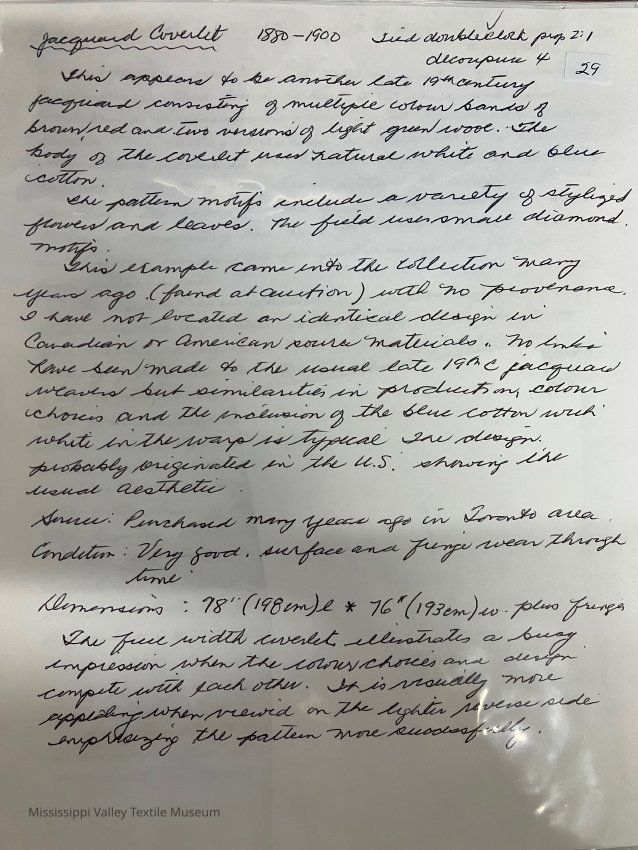 Jacquard Coverlet 1880-1900 Tied doublecloth prop 2:1
decoupure 4
29
This appears to be another late 19th century
jacquard consisting of multiple colour bands of
brown red and two versions of light green wool. The
body of the coverlet uses natural white and blue
cotton.
The pattern motifs include a variety of stylized
flowers and leaves. The field uses small diamond
motifs.
This example came into the collection many
years ago (found at auction) with no provenance.
I have not located an identical design in
Canadian or American source materials. No links
have been made to the usual late 19th C jacquard
weavers but similarities in production, colour
choices and the inclusion of the blue cotton with
white in the warp is typical The design
probably originated in the U.S. showing the
usual aesthetic.
Source: Purchased many years ago in Toronto area.
Condition: Very good. surface and fringe wear through
time
Dimensions: 78" (198cm) l * 76" (193cm) w. plus fringe
The full width coverlet illustrates a busy
impression when the colour choices and design
compete with each other. It is visually more
appealing when viewed on the lighter reverse side
emphasizing the pattern more successfully.
Mississippi Valley Textile Museum